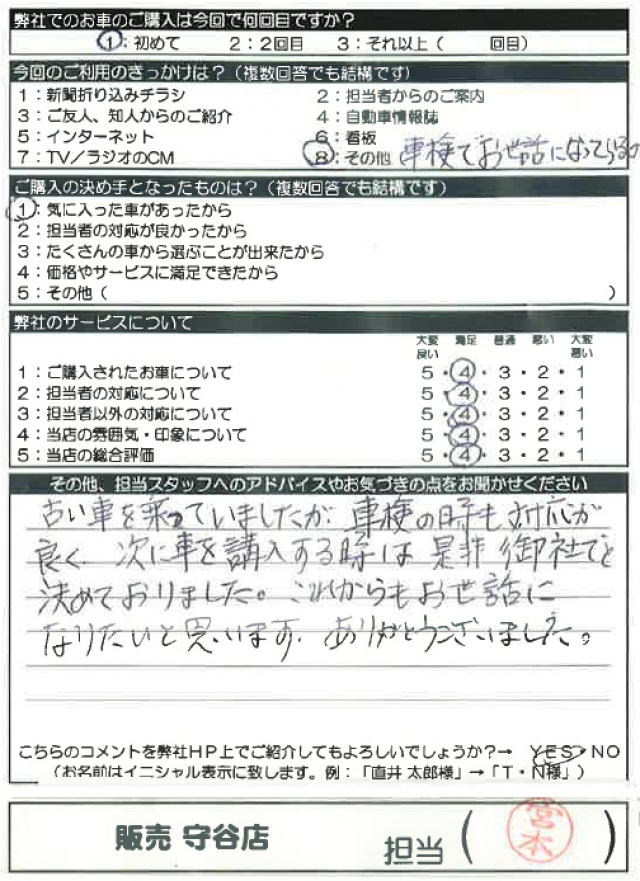 弊社でのお車のご購入は今回で何回目ですか？
1：初めて 2：2回目 3：それ以上（ 回目）
今回のご利用のきっかけは？（複数回答でも結構です）
1：新聞折り込みチラシ 2：担当者からのご案内
3：ご友人、知人からのご紹介 4：自動車情報誌
5：インターネット 6：看板
7：TV／ラジオのCM 8：その他 車検でお世話になっている
ご購入の決め手となったものは？（複数回答でも結構です）
1：気に入った車があったから
2：担当者の対応が良かったから
3：たくさんの車から選ぶことが出来たから
4：価格やサービスに満足できたから
5：その他（ ）
弊社のサービスについて
大変良い 満足 普通 悪い 大変悪い
1：ご購入されたお車について 5・4・3・2・1
2：担当者の対応について 5・4・3・2・1
3：担当者以外の対応について 5・4・3・2・1
4：当店の雰囲気・印象について 5・4・3・2・1
5：当店の総合評価 5・4・3・2・1
その他、担当スタッフへのアドバイスやお気づきの点をお聞かせください
古い車を乗っていましたが、車検の時も対応が
良く、次に車を購入する時は是非御社でと
決めておりました。これからもお世話に
なりたいと思います。ありがとうございました。
こちらのコメントを弊社HP上でご紹介してもよろしいでしょうか？→ YES・NO
（お名前はイニシャル表示に致します。例：「直井 太郎様」→「T・N様」）
販売 守谷店 担当（宮本）